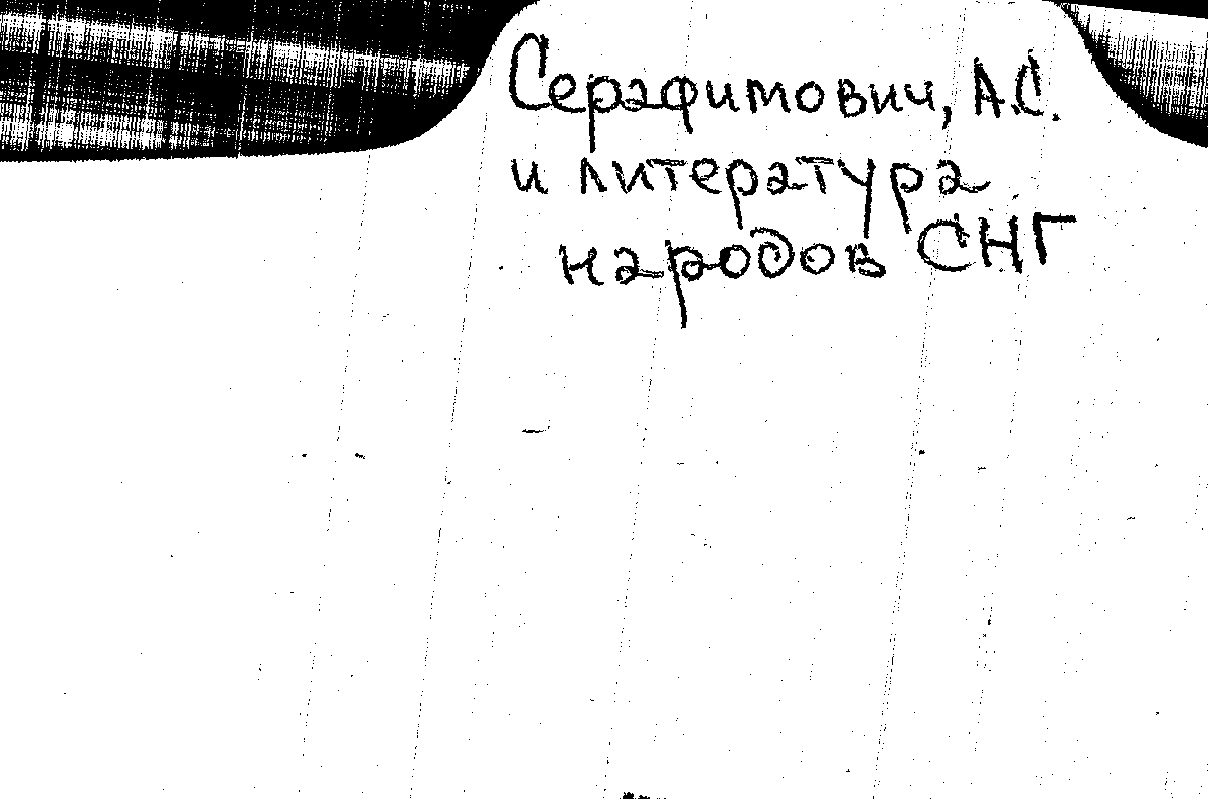 Серафимович, А.С.
и литература
народов СНГ